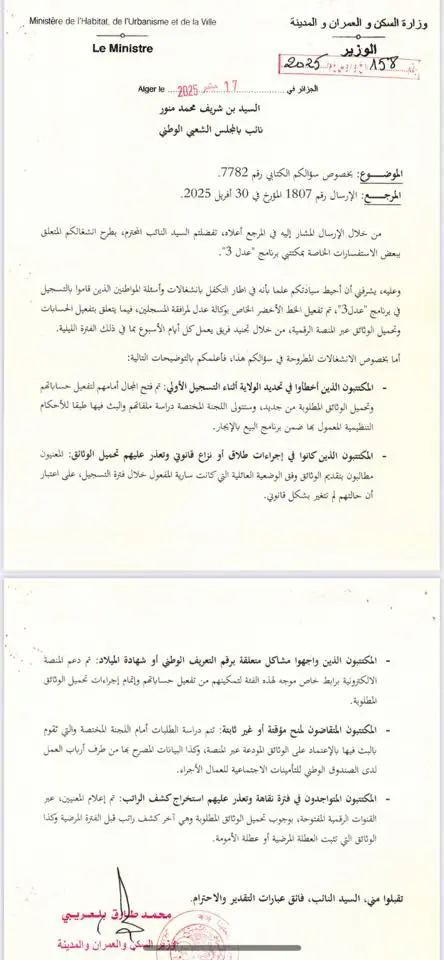 Ministère de l'Habitat, de l'Urbanisme et de la Ville
وزارة السكن و العمران و المدينة
Le Ministre
الوزير
158
2025
Alger le 17 2025 الجزائر في
السيد بن شريف محمد منور
نائب بالمجلس الشعبي الوطني
الموضوع: بخصوص سؤالكم الكتابي رقم 7782.
المرجع: الإرسال رقم 1807 المؤرخ في 30 أفريل 2025.
من خلال الإرسال المشار إليه في المرجع أعلاه، تفضلتم السيد النائب المحترم، بطرح انشغالكم المتعلق
ببعض الاستفسارات الخاصة بمكتتبي برنامج "عدل 3".
وعليه، يشرفني أن أحيط سيادتكم علما بأنه في اطار التكفل بانشغالات وأسئلة المواطنين الذين قاموا بالتسجيل
في برنامج "عدل3"، تم تفعيل الخط الأخضر الخاص بوكالة عدل لمرافقة المسجلين، فيما يتعلق بتفعيل الحسابات
وتحميل الوثائق عبر المنصة الرقمية، من خلال تجنيد فريق يعمل كل أيام الأسبوع بما في ذلك الفترة الليلية.
أما بخصوص الانشغالات المطروحة في سؤالكم هذا، فأعلمكم بالتوضيحات التالية:
- المكتتبون الذين أخطأوا في تحديد الولاية أثناء التسجيل الأولي: تم فتح المجال أمامهم لتفعيل حساباتهم
وتحميل الوثائق المطلوبة من جديد، وستتولى اللجنة المختصة دراسة ملفاتهم والبث فيها طبقا للأحكام
التنظيمية المعمول بها ضمن برنامج البيع بالإيجار.
- المكتتبون الذين كانوا في إجراءات طلاق أو نزاع قانوني وتعذر عليهم تحميل الوثائق: المعنيون
مطالبون بتقديم الوثائق وفق الوضعية العائلية التي كانت سارية المفعول خلال فترة التسجيل، على اعتبار
أن حالتهم لم تتغير بشكل قانوني.
- المكتتبون الذين واجهوا مشاكل متعلقة برقم التعريف الوطني أو شهادة الميلاد: تم دعم المنصة
الالكترونية برابط خاص موجه لهذه الفئة لتمكينهم من تفعيل حساباتهم وإتمام إجراءات تحميل الوثائق
المطلوبة.
- المكتتبون المتقاضون لمنح مؤقتة أو غير ثابتة: تتم دراسة الطلبات أمام اللجنة المختصة والتي تقوم
بالبث فيها بالإعتماد على الوثائق المودعة عبر المنصة، وكذا البيانات المصرح بها من طرف أرباب العمل
لدى الصندوق الوطني للتأمينات الاجتماعية للعمال الأجراء.
- المكتتبون المتواجدون في فترة نقاهة وتعذر عليهم استخراج كشف الراتب: تم إعلام المعنيين، عبر
القنوات الرقمية المفتوحة، بوجوب تحميل الوثائق المطلوبة وهي آخر كشف راتب قبل الفترة المرضية وكذا
الوثائق التي تثبت العطلة المرضية أو عطلة الأمومة.
تقبلوا مني، السيد النائب، فائق عبارات التقدير والاحترام.
محمد طارق بلعريبي
وزير السكن والعمران والمدينة